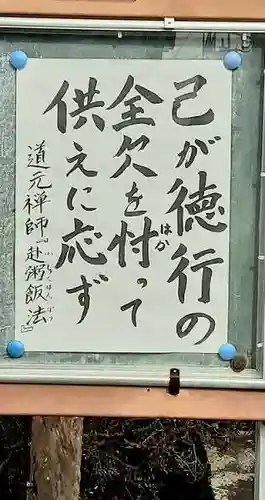 己が徳行の
全欠を忖って
はか
供えに応ず
道元禅師『赴粥飯法』
ふしゅくはんぽう